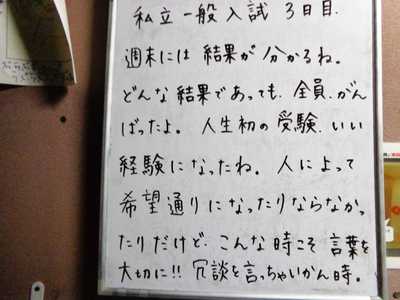 私立一般入試 3日目.
週末には 結果が 分かるね。
どんな結果であっても、全員、がん
ばったよ。人生初の受験、いい
経験になったね。人によって
希望通りになったりならなかっ
たりだけど、こんな時こそ 言葉を
大切に!! 冗談を言っちゃいかん時。